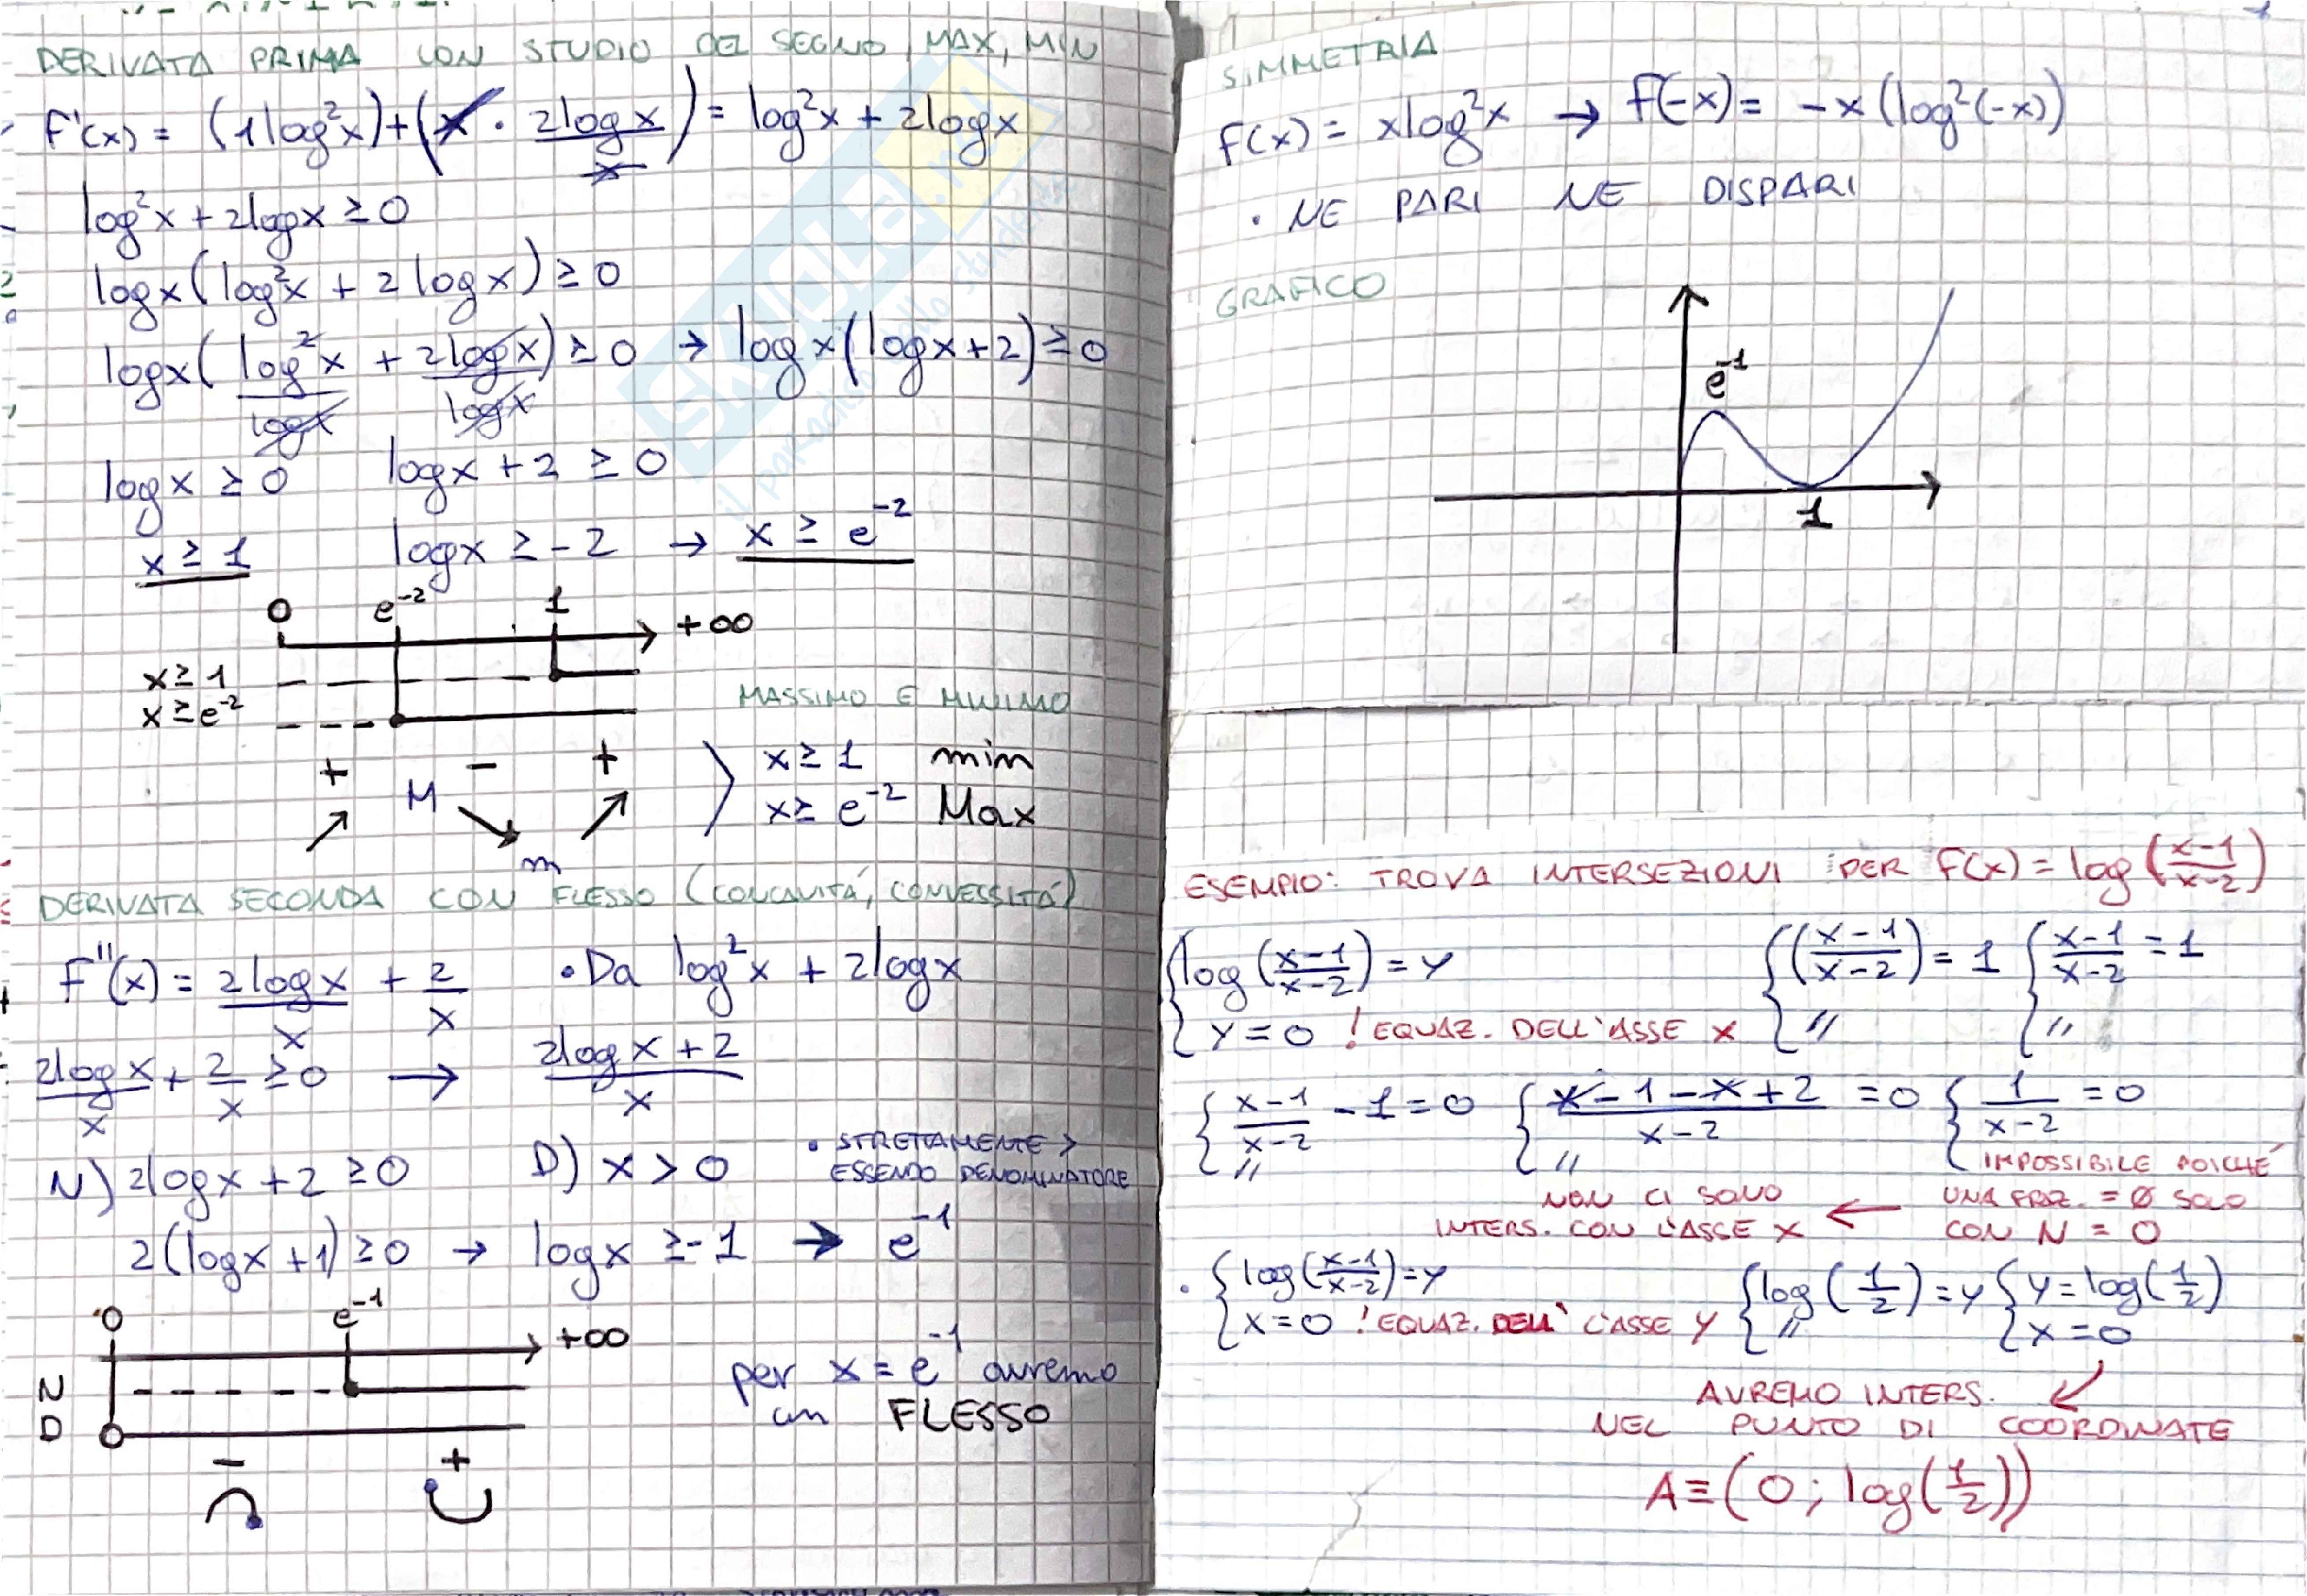 DERIVATA PRIMA CON STUDIO DEL SEGNO, MAX, MIN
F'(x) = (1log²x)+(x · 2logx/x) = log²x + 2logx
log²x + 2logx ≥ 0
logx(log²x + 2logx) ≥ 0
logx(log²x/logx + 2logx/logx) ≥ 0 → logx(logx+2) ≥ 0
logx ≥ 0 logx + 2 ≥ 0
x ≥ 1 logx ≥ -2 → x ≥ e⁻²
0 e⁻² 1 +∞
x ≥ 1
x ≥ e⁻²
MASSIMO E MINIMO
+ M - m +
x ≥ 1 min
x ≥ e⁻² Max
DERIVATA SECONDA CON FLESSO (CONCAVITÁ, CONVESSITÁ)
F''(x) = 2logx/x + 2/x • Da log²x + 2logx
2logx/x + 2/x ≥ 0 → 2logx + 2/x
N) 2logx + 2 ≥ 0 D) x > 0 • STRETTAMENTE >
ESSENDO DENOMINATORE
2(logx + 1) ≥ 0 → logx ≥ -1 → e⁻¹
0 e⁻¹ +∞
N
D
- +
per x = e⁻¹ avremo
un FLESSO
SKUOLA.net
il paradiso dello studente
SIMMETRIA
F(x) = xlog²x → F(-x) = -x(log²(-x))
• NE PARI NE DISPARI
GRAFICO
e⁻¹
1
ESEMPIO: TROVA INTERSEZIONI PER F(x) = log(x-1/x-2)
{log(x-1/x-2) = y {(x-1/x-2) = 1 {x-1/x-2 = 1
{y = 0 ! EQUAZ. DELL'ASSE x {// {//
{x-1/x-2 - 1 = 0 {x-1-x+2/x-2 = 0 {1/x-2 = 0
{// {// {IMPOSSIBILE POICHÉ
NON CI SONO ← UNA FRAZ. = 0 SOLO
INTERS. CON L'ASSE x CON N = 0
• {log(x-1/x-2) = y {log(1/2) = y {y = log(1/2)
{x = 0 ! EQUAZ. DELL' L'ASSE y {// {x = 0
AVREMO INTERS.
NEL PUNTO DI COORDINATE
A ≡ (0; log(1/2))